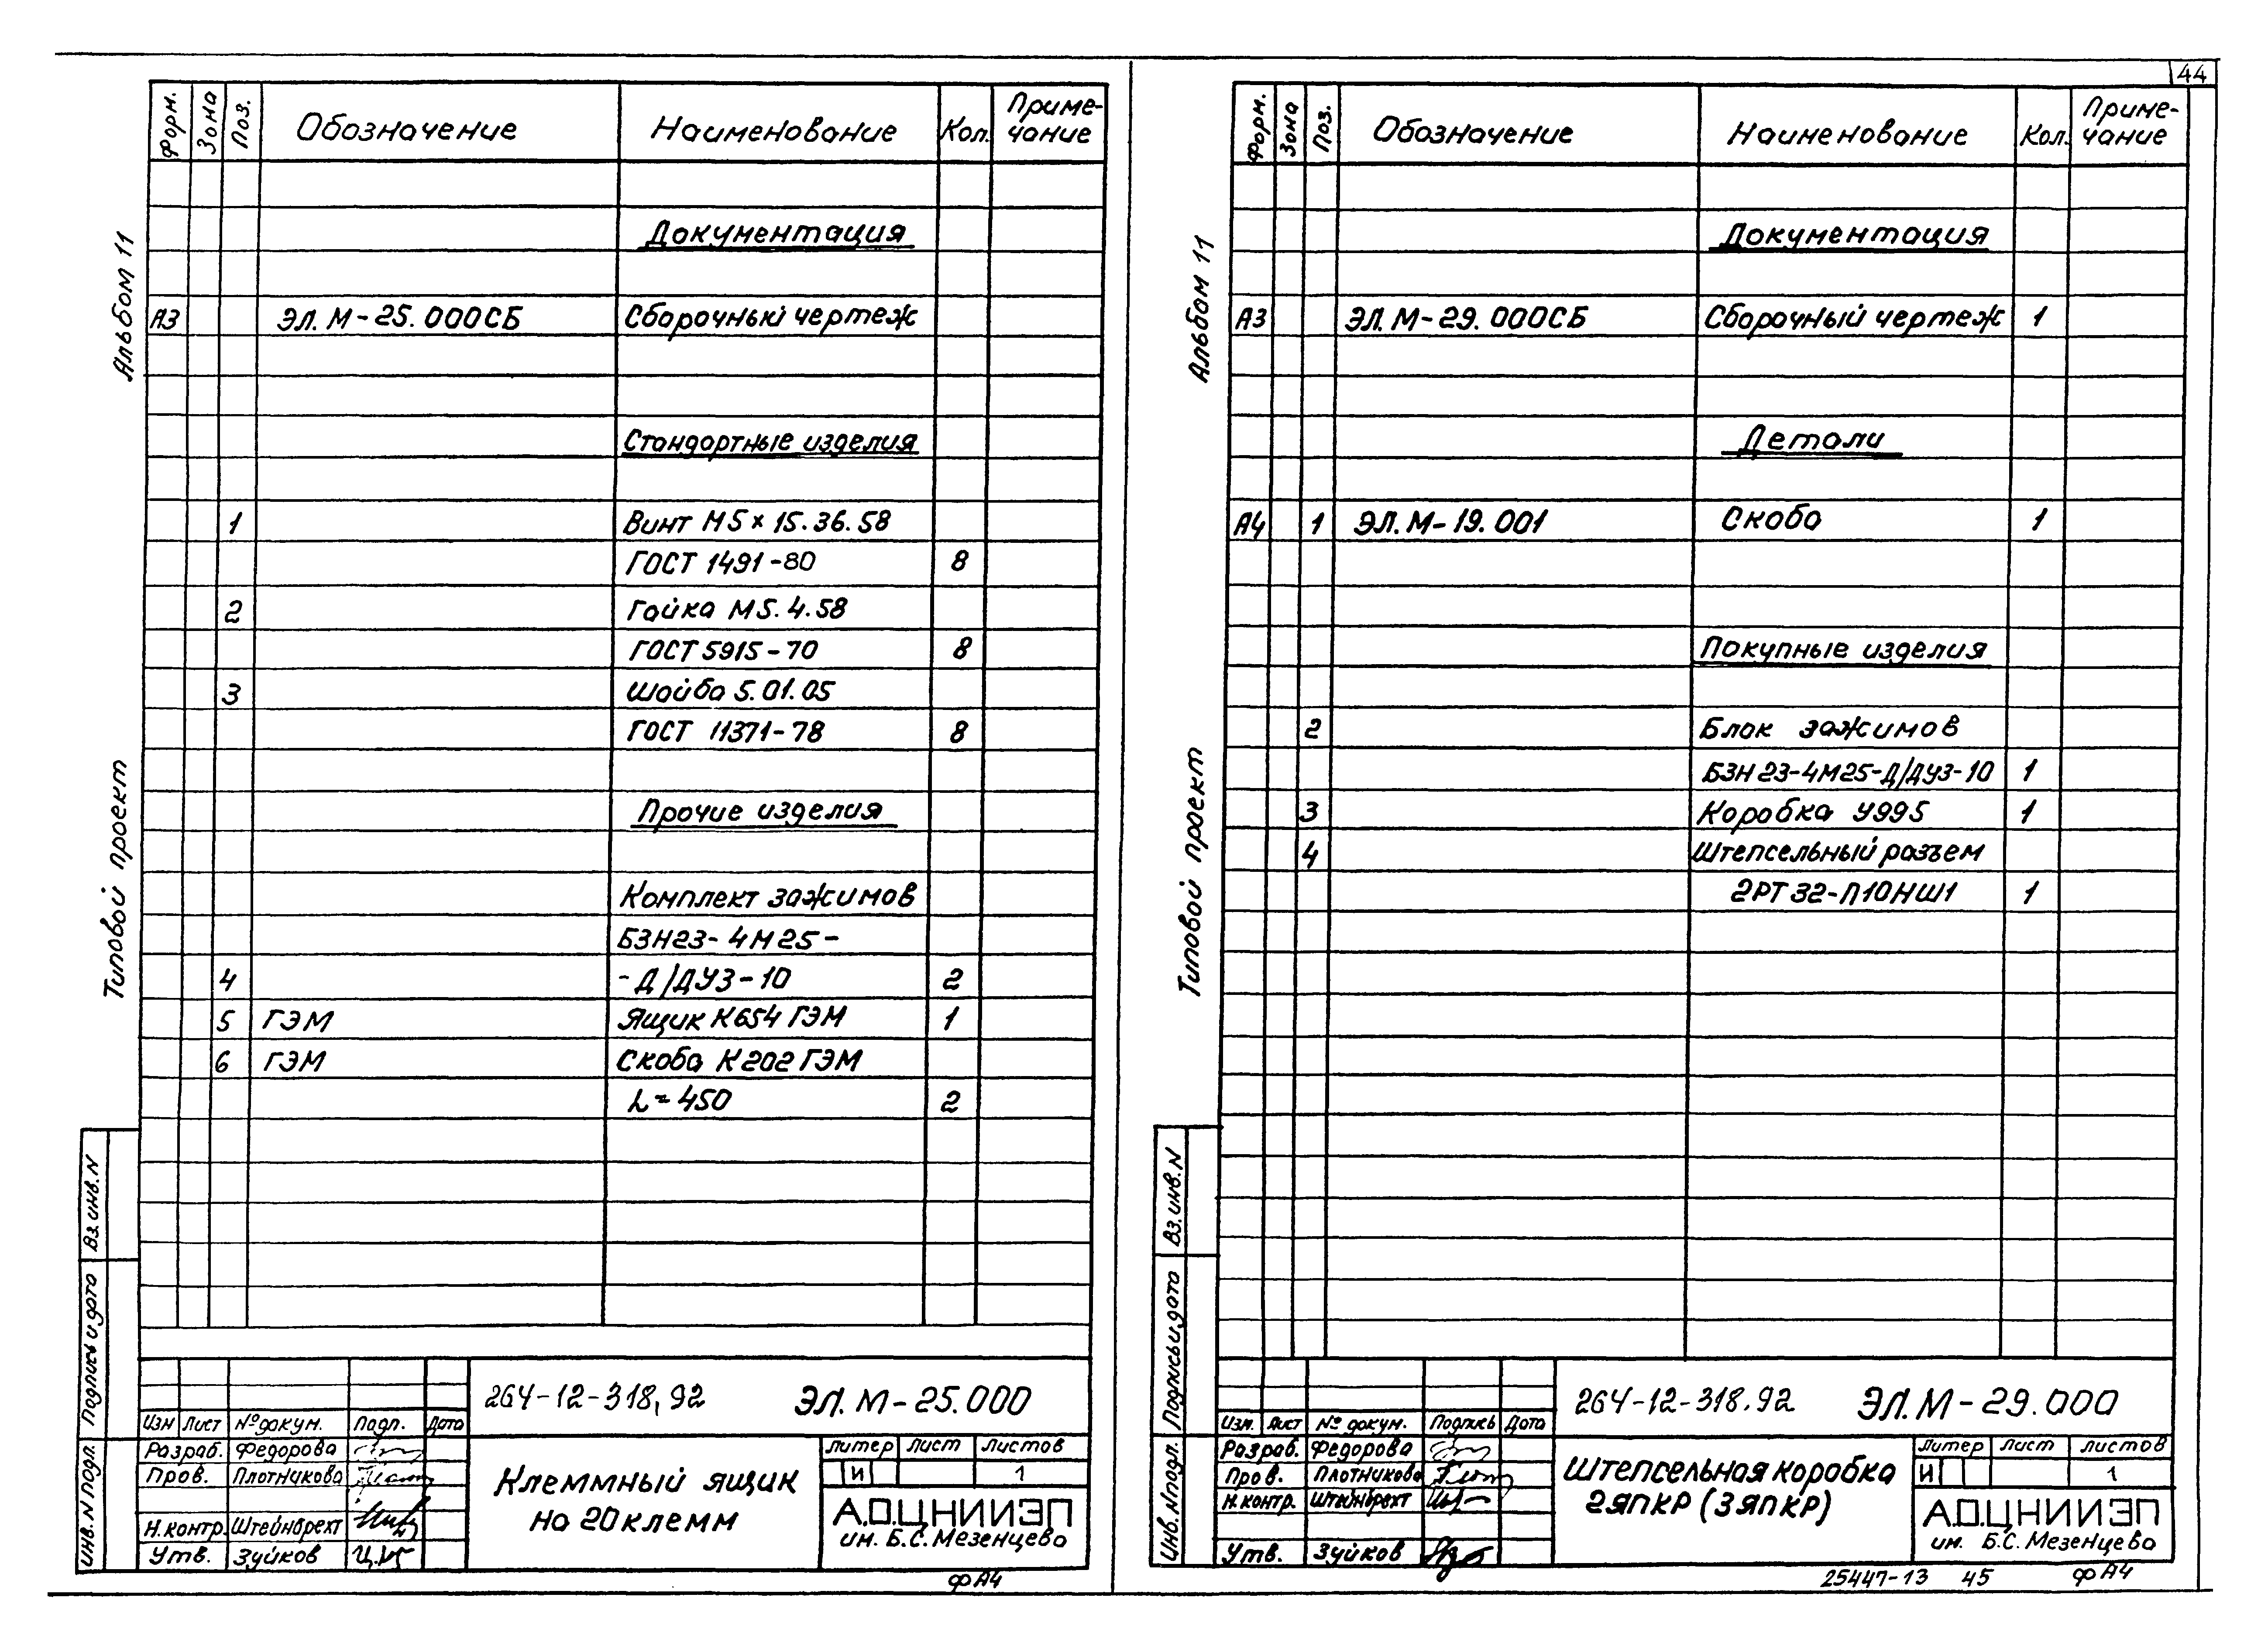 44
Форм. Зона Поз. Обозначение Наименование Кол. Приме-
чание
Документация
А3 ЭЛ.М-25.000СБ Сборочный чертеж
Стандартные изделия
1 Винт М5×15.36.58
ГОСТ 1491-80 8
2 Гайка М5.4.58
ГОСТ 5915-70 8
3 Шайба 5.01.05
ГОСТ 11371-78 8
Прочие изделия
Комплект зажимов
БЗН23-4М25-
4 -Д/ДУЗ-10 2
5 ГЭМ Ящик К654 ГЭМ 1
6 ГЭМ Скоба К202 ГЭМ
L=450 2
Альбом 11
Типовой проект
Вз. инв. N
Подпись и дата
Инв. N подл.
264-12-318,92 ЭЛ.М-25.000
Изм Лист № докум. Подп. Дата
Разраб. Федорова
Пров. Плотникова
Н.контр. Штейнбрехт
Утв. Зуйков
Клеммный ящик
на 20 клемм
Литер Лист Листов
И 1
А.О.ЦНИИЭП
им. Б.С. Мезенцева
ФА4
Форм. Зона Поз. Обозначение Наименование Кол. Приме-
чание
Документация
А3 ЭЛ.М-29.000СБ Сборочный чертеж 1
Детали
А4 1 ЭЛ.М-19.001 Скоба 1
Покупные изделия
2 Блок зажимов
БЗН23-4М25-Д/ДУЗ-10 1
3 Коробка У995 1
4 Штепсельный разъем
2РТ32-П10НШ1 1
Альбом 11
Типовой проект
Вз. инв. N
Подпись и дата
Инв. N подл.
264-12-318.92 ЭЛ.М-29.000
Изм. Лист № докум. Подпись Дата
Разраб. Федорова
Пров. Плотникова
Н.контр. Штейнбрехт
Утв. Зуйков
Штепсельная коробка
2ЯПКР (3ЯПКР)
Литер Лист Листов
И 1
А.О.ЦНИИЭП
им. Б.С. Мезенцева
25447-13 45 ФА4